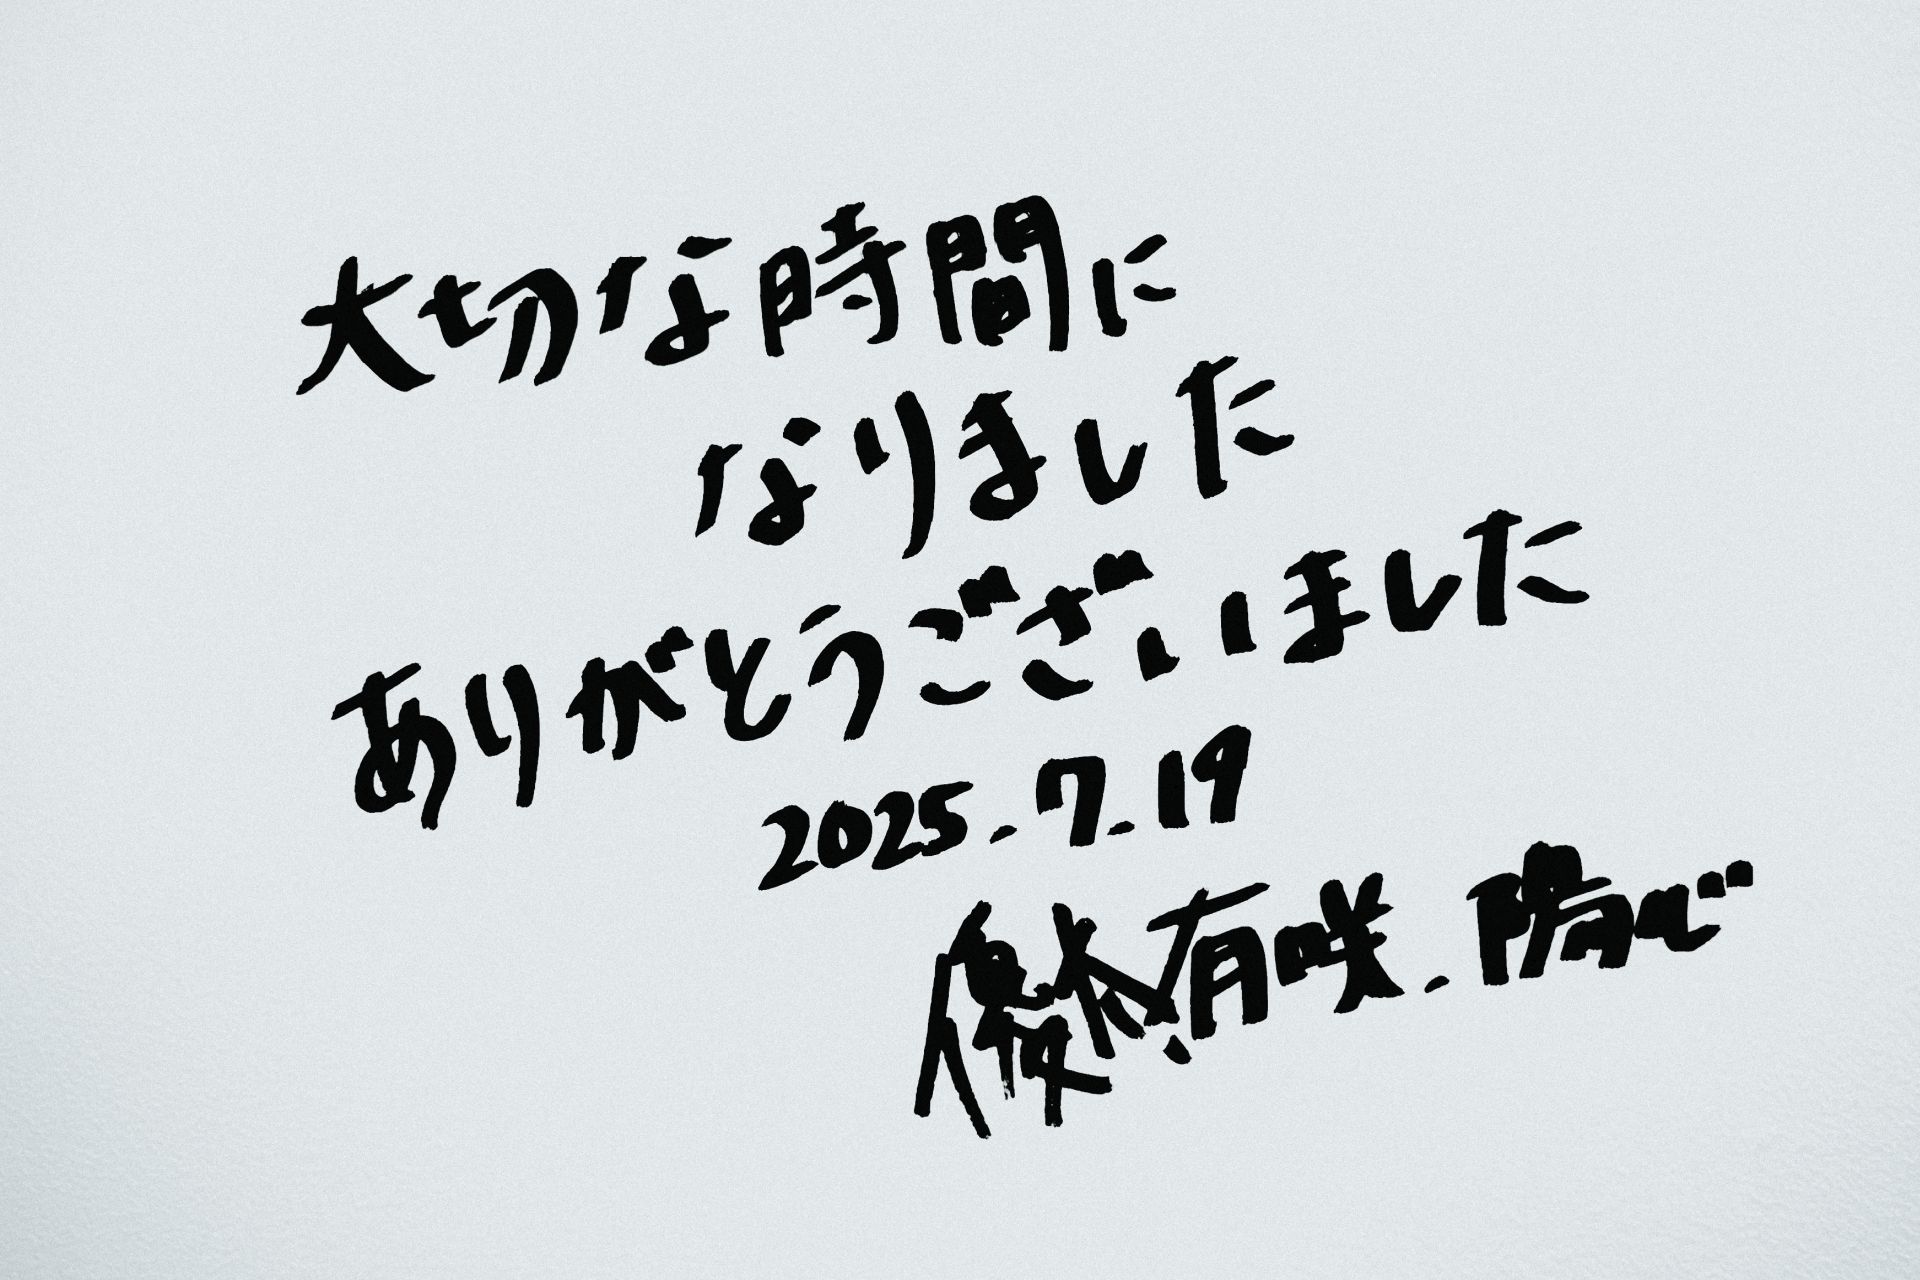 大切な時間に
なりました
ありがとうございました
2025.7.19
有咲.陽心